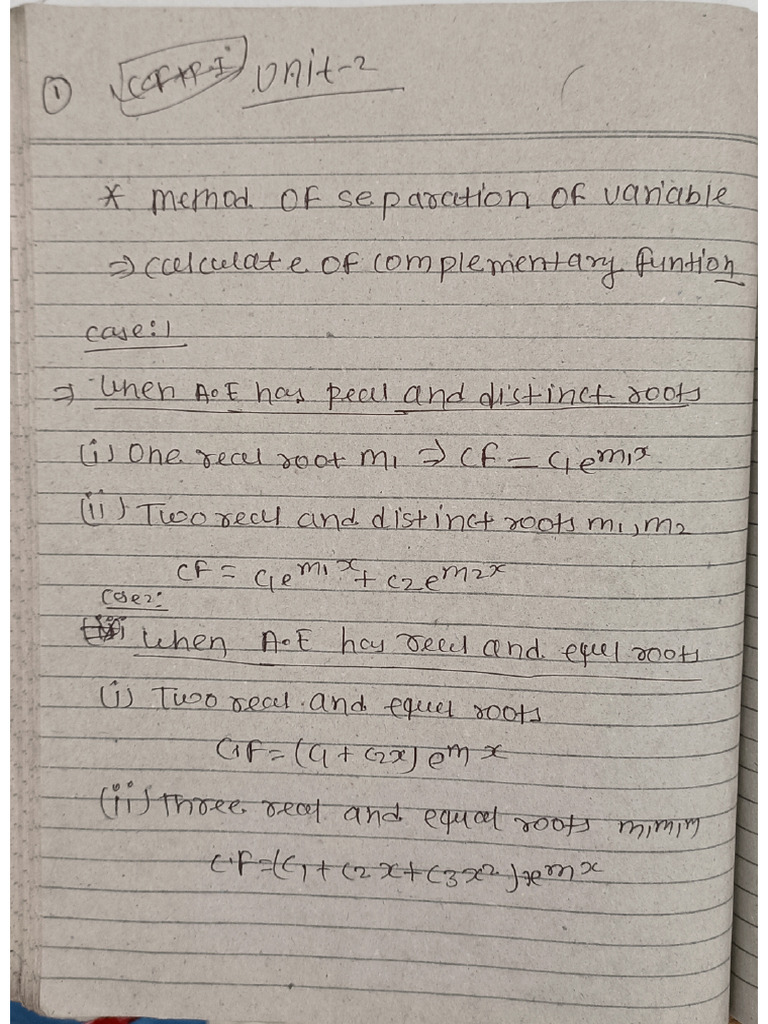 ① (CF+P.I) Unit-2
* method of separation of variable
⇒ calculate of complementary funtion
case:1
⇒ When A.E has real and distinct roots
(i) One real root m₁ ⇒ CF = c₁e^m₁x
(ii) Two real and distinct roots m₁, m₂
CF = c₁e^m₁x + c₂e^m₂x
Case2:
When A.E has real and equel roots
(i) Two real and equel roots
C.F = (c₁ + c₂x) e^mx
(ii) three real and equal roots m,m,m
C.F = (c₁ + c₂x + c₃x²) e^mx